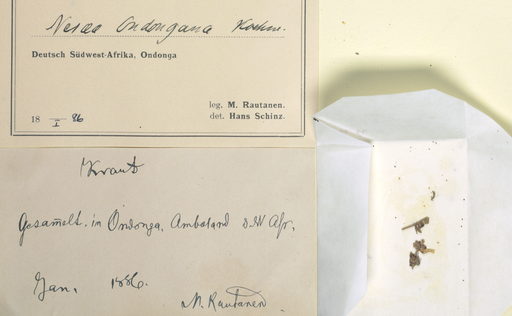 Nesaea Ondongana Koehne.
Deutsch Südwest-Afrika, Ondonga
18 86
I
leg. M. Rautanen.
det. Hans Schinz.
Kraut
Gesam̅elt. in Ondonga, Amboland S.W Afr.
Jan. 1886.
M. Rautanen